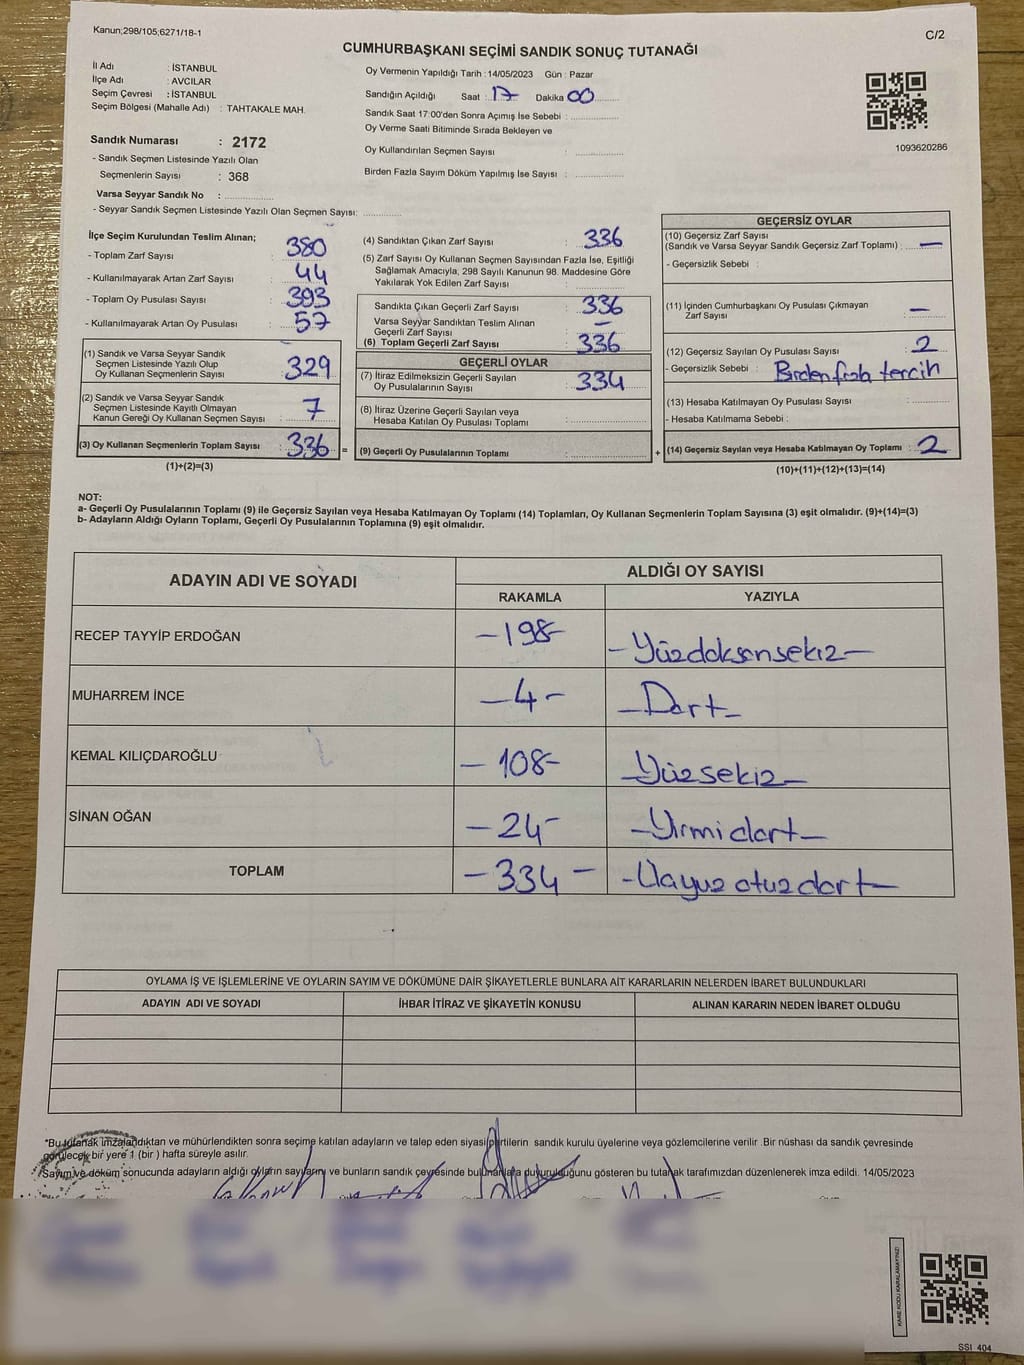 Kanun;298/105;6271/18-1
C/2
CUMHURBAŞKANI SEÇİMİ SANDIK SONUÇ TUTANAĞI
İl Adı : İSTANBUL
İlçe Adı : AVCILAR
Seçim Çevresi : İSTANBUL
Seçim Bölgesi (Mahalle Adı) : TAHTAKALE MAH.
Sandık Numarası : 2172
- Sandık Seçmen Listesinde Yazılı Olan
Seçmenlerin Sayısı : 368
Varsa Seyyar Sandık No :
- Seyyar Sandık Seçmen Listesinde Yazılı Olan Seçmen Sayısı:
Oy Vermenin Yapıldığı Tarih :14/05/2023 Gün : Pazar
Sandığın Açıldığı Saat : 17 Dakika 00
Sandık Saat 17:00'den Sonra Açımış İse Sebebi :
Oy Verme Saati Bitiminde Sırada Bekleyen ve
Oy Kullandırılan Seçmen Sayısı :
Birden Fazla Sayım Döküm Yapılmış İse Sayısı :
1093620286
İlçe Seçim Kurulundan Teslim Alınan;
- Toplam Zarf Sayısı : 380
- Kullanılmayarak Artan Zarf Sayısı : 44
- Toplam Oy Pusulası Sayısı : 393
- Kullanılmayarak Artan Oy Pusulası : 57
(1) Sandık ve Varsa Seyyar Sandık
Seçmen Listesinde Yazılı Olup
Oy Kullanan Seçmenlerin Sayısı : 329
(2) Sandık ve Varsa Seyyar Sandık
Seçmen Listesinde Kayıtlı Olmayan
Kanun Gereği Oy Kullanan Seçmen Sayısı : 7
(3) Oy Kullanan Seçmenlerin Toplam Sayısı : 336 =
(1)+(2)=(3)
(4) Sandıktan Çıkan Zarf Sayısı : 336
(5) Zarf Sayısı Oy Kullanan Seçmen Sayısından Fazla İse, Eşitliği
Sağlamak Amacıyla, 298 Sayılı Kanunun 98. Maddesine Göre
Yakılarak Yok Edilen Zarf Sayısı :
Sandıkta Çıkan Geçerli Zarf Sayısı : 336
Varsa Seyyar Sandıktan Teslim Alınan
Geçerli Zarf Sayısı : –
(6) Toplam Geçerli Zarf Sayısı : 336
GEÇERLİ OYLAR
(7) İtiraz Edilmeksizin Geçerli Sayılan
Oy Pusulalarının Sayısı : 334
(8) İtiraz Üzerine Geçerli Sayılan veya
Hesaba Katılan Oy Pusulası Toplamı :
(9) Geçerli Oy Pusulalarının Toplamı : +
GEÇERSİZ OYLAR
(10) Geçersiz Zarf Sayısı
(Sandık ve Varsa Seyyar Sandık Geçersiz Zarf Toplamı) : –
- Geçersizlik Sebebi :
(11) İçinden Cumhurbaşkanı Oy Pusulası Çıkmayan
Zarf Sayısı : –
(12) Geçersiz Sayılan Oy Pusulası Sayısı : 2
- Geçersizlik Sebebi : Birden fazla tercih
(13) Hesaba Katılmayan Oy Pusulası Sayısı :
- Hesaba Katılmama Sebebi :
(14) Geçersiz Sayılan veya Hesaba Katılmayan Oy Toplamı : 2
(10)+(11)+(12)+(13)=(14)
NOT:
a- Geçerli Oy Pusulalarının Toplamı (9) ile Geçersiz Sayılan veya Hesaba Katılmayan Oy Toplamı (14) Toplamları, Oy Kullanan Seçmenlerin Toplam Sayısına (3) eşit olmalıdır. (9)+(14)=(3)
b- Adayların Aldığı Oyların Toplamı, Geçerli Oy Pusulalarının Toplamına (9) eşit olmalıdır.
ADAYIN ADI VE SOYADI
ALDIĞI OY SAYISI
RAKAMLA YAZIYLA
RECEP TAYYİP ERDOĞAN –198– –Yüzdoksansekiz–
MUHARREM İNCE –4– –Dört–
KEMAL KILIÇDAROĞLU –108– –Yüzsekiz–
SİNAN OĞAN –24– –Yirmidört–
TOPLAM –334– –Üçyüz otuz dört–
OYLAMA İŞ VE İŞLEMLERİNE VE OYLARIN SAYIM VE DÖKÜMÜNE DAİR ŞİKAYETLERLE BUNLARA AİT KARARLARIN NELERDEN İBARET BULUNDUKLARI
ADAYIN ADI VE SOYADI İHBAR İTİRAZ VE ŞİKAYETİN KONUSU ALINAN KARARIN NEDEN İBARET OLDUĞU
*Bu tutanak imzalandıktan ve mühürlendikten sonra seçime katılan adayların ve talep eden siyasi partilerin sandık kurulu üyelerine veya gözlemcilerine verilir .Bir nüshası da sandık çevresinde
görülecek bir yere 1 (bir ) hafta süreyle asılır.
Sayım ve döküm sonucunda adayların aldığı oyların sayılarını ve bunların sandık çevresinde bulunanlara duyurulduğunu gösteren bu tutanak tarafımızdan düzenlenerek imza edildi. 14/05/2023
KARE KODU KARALAMAYINIZ!
SSI 404